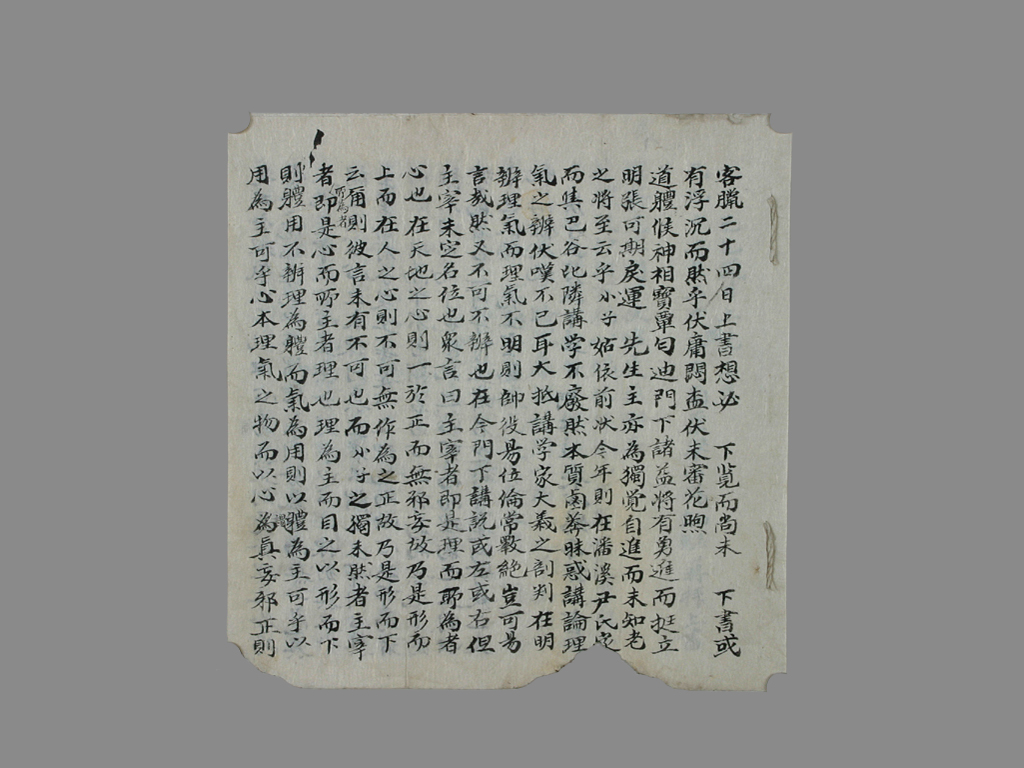 客臘二十四日上書想必 下覧而尚未 下書或
有浮沉而然乎伏庸悶盍伏未審花煦
道體候神相寶覃匂迪門下諸益將有勇進而挺立
明張可期戾運 先生主亦為獨覚自進而未知老
之將至云乎小子姑依前状今年則在潘溪尹氏定
而其巴谷比隣講学不廢然本質鹵莽昧惑講論理
氣之辨伏嘆不已耳大抵講学家大義之剖判在明
辨理氣而理氣不明則帥役易位倫常斁絶豈可易
言哉然又不可不辨也在今門下講説或左或右但
主宰未定名位也衆言曰主宰者即是理而所為者
心也在天地之心則一於正而無邪妄故乃是形而
上而在人之心則不可無作為之正故乃是形而下
云爾則彼言未有不可也而小子之獨未然者主宰
者即是心而所主者理也理為主而目之以形而下
則體用不辨理為體而氣為用則以體為主可乎以
用為主可乎心本理氣之物而以心為真妄邪正則